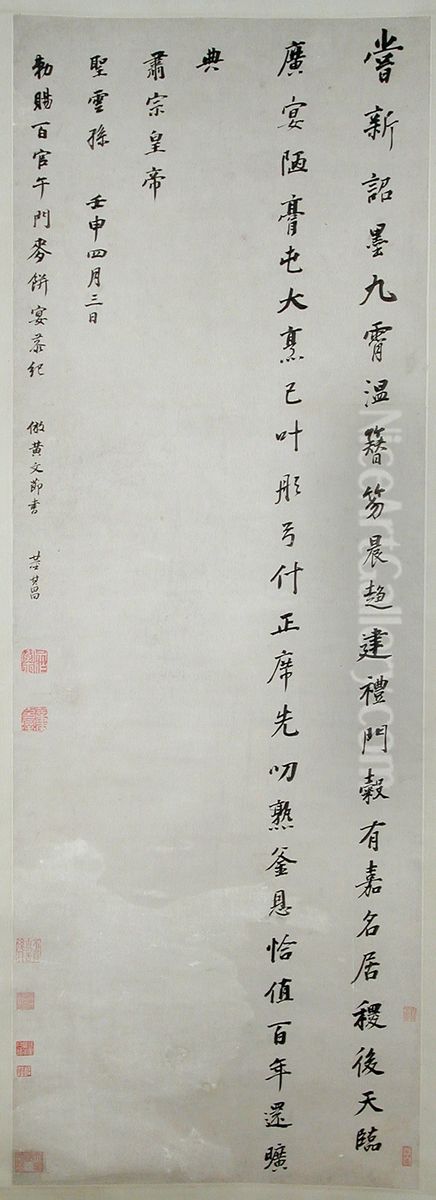 嘗新詔墨九霄温簪笏晨趍建禮門穀有嘉名居稷後天臨
廣宴陋膏屯大烹已叶彤弓什正席先叨熟釜恩恰值百年還曠
典
肅宗皇帝
聖雲孫 壬申四月三日
勑賜百官午門麥餅宴恭紀 倣黄文節書 其昌
NiceArtGallery.com